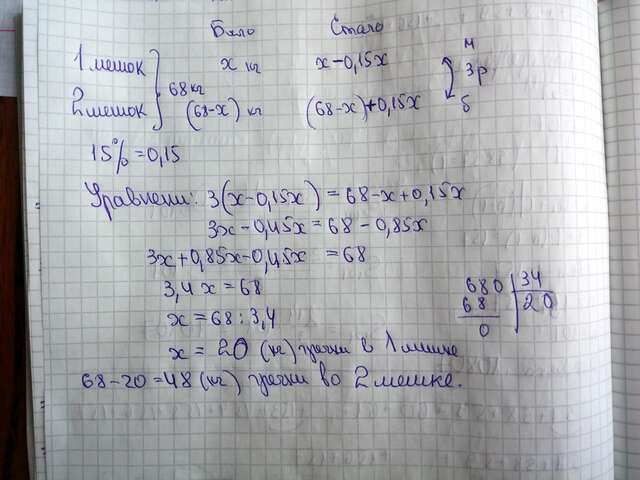 Было Стало
1 мешок x кг x-0,15x м
68 кг 3 р
2 мешок (68-x) кг (68-x)+0,15x б
15%=0,15
Уравнени: 3(x-0,15x)=68-x+0,15x
3x-0,45x=68-0,85x
3x+0,85x-0,45x=68
3,4x=68
x=68:3,4
680 34
68 20
0
x=20 (кг) гречки в 1 мешке
68-20=48 (кг) гречки во 2 мешке.